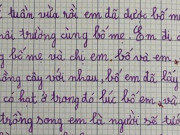 tuần vừa rồi em đã được bố mẹ
trường cùng bố mẹ. Em đi
bố mẹ và chị em. bố và em
cây với nhau, bố em đã lấy
có hạt ở trong đó lúc bố em và
trồng song em là người rủ